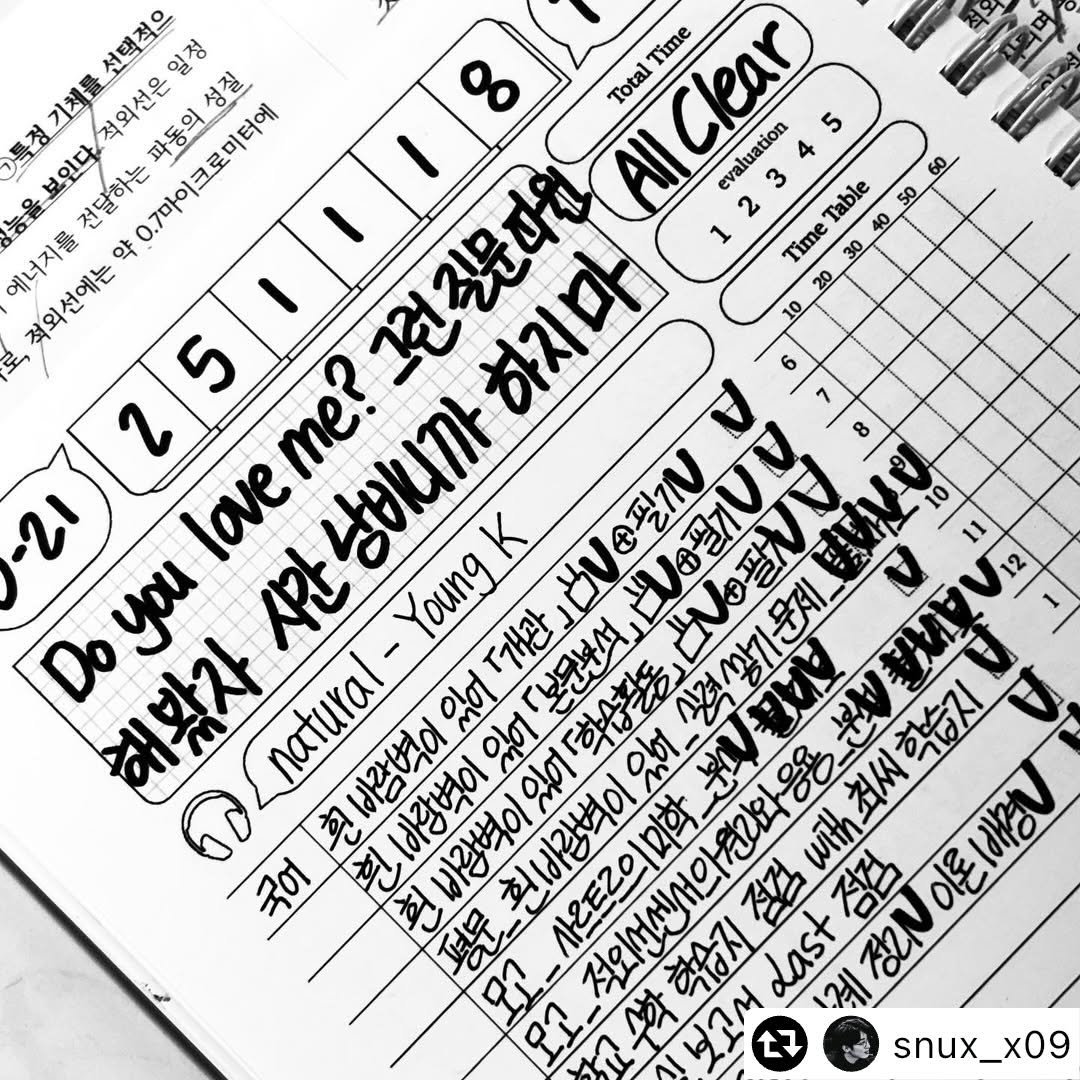 ㉠특정 기체를 선택적으
성능을 보인다. 적외선은 일정
에너지를 전달하는 파동의 성질
로, 적외선에는 약 0.7마이크로미터에
2 5 1 1 1 8
-21
Total Time
All Clear
evaluation
1 2 3 4 5
Time Table
10 20 30 40 50 60
6
7
8
9
10
11
12
1
Do you love me? 그런 질문 따윈
해봤자 시간 낭비니까 하지 마
natural - Young K
국어
흰 바람벽이 있어 「개관」 ⊕필기
흰 바람벽이 있어 「본문분석」 ⊕필기
흰 바람벽이 있어 「학습활동」 ⊕필기
평문_흰 바람벽이 있어_실력 쌓기 문제
모고_사르트르의 미학_분석
모고_적외선센서의 원리와 응용_분석
학교 수학 학습지 점검 with 최씨 학습지
보고서 Last 점검
정리 이론 배경
snux_x09